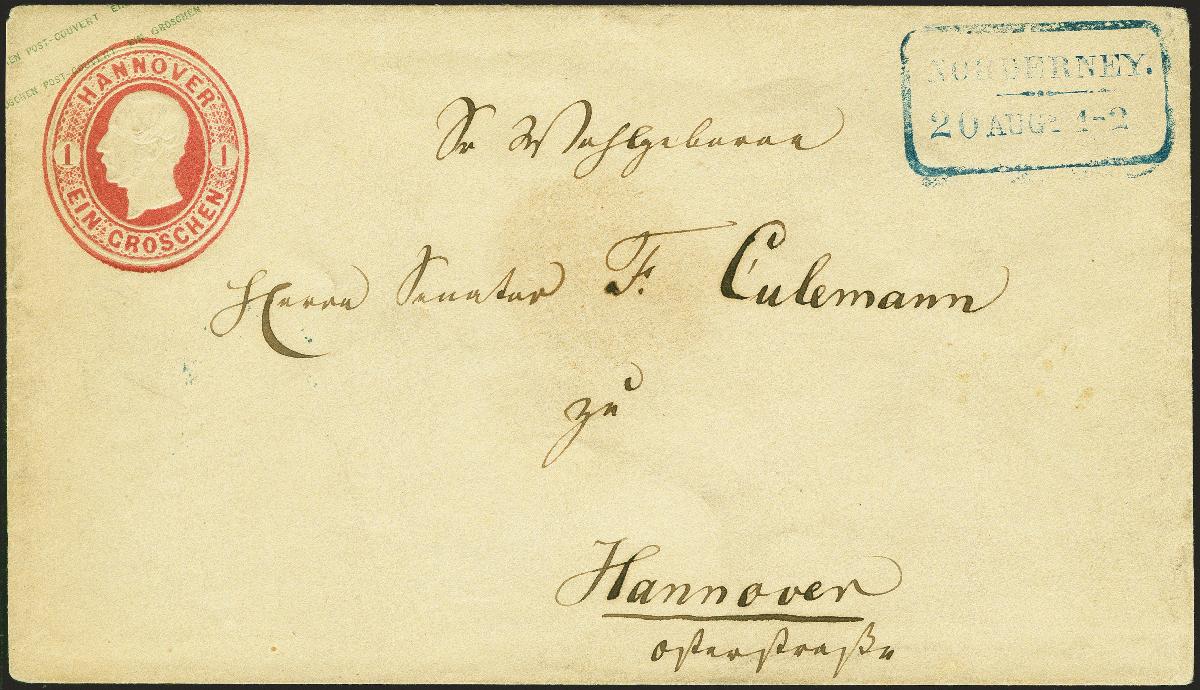 EN POST-COUVERT EI
GROSCHEN
OSCHEN POST-COUVERT EIN GROSCHEN
HANNOVER
1 1
EIN GROSCHEN
NORDERNEY.
20 AUG: 1-2
Sr Wohlgeboren
Herrn Senator F. Culemann
zu
Hannover
Osterstraße